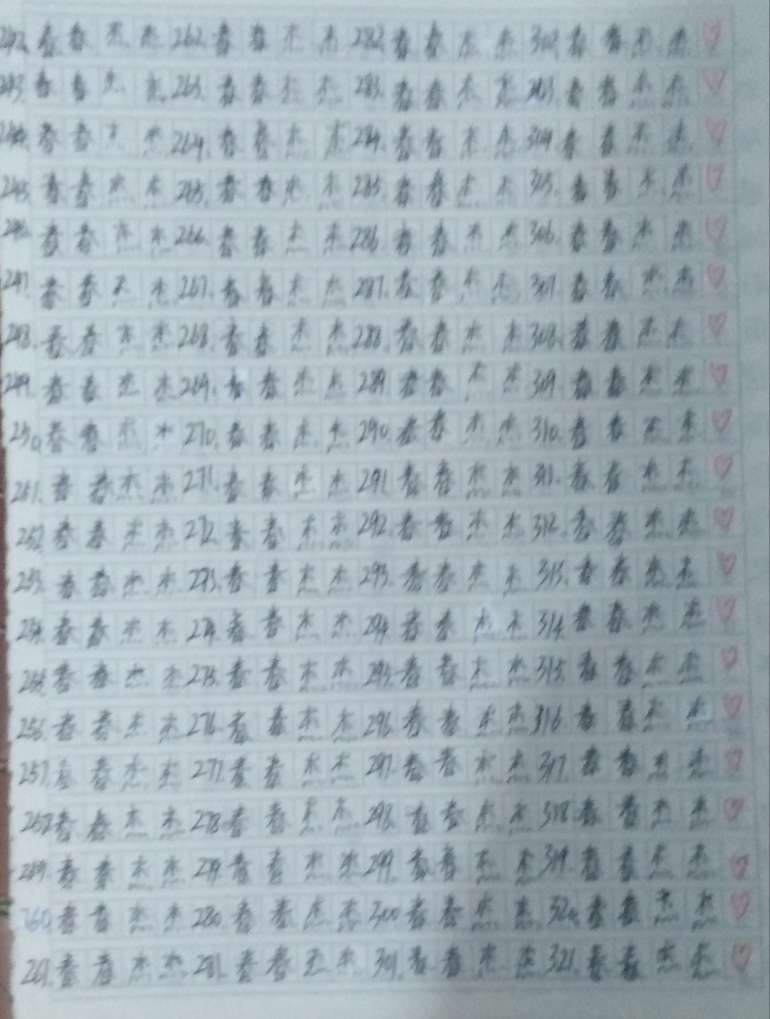 242. 春春杰杰 262. 春春杰杰 282. 春春杰杰 302. 春春杰杰
243. 春春杰杰 263. 春春杰杰 283. 春春杰杰 303. 春春杰杰
244. 春春杰杰 264. 春春杰杰 284. 春春杰杰 304. 春春杰杰
245. 春春杰杰 265. 春春杰杰 285. 春春杰杰 305. 春春杰杰
246. 春春杰杰 266. 春春杰杰 286. 春春杰杰 306. 春春杰杰
247. 春春杰杰 267. 春春杰杰 287. 春春杰杰 307. 春春杰杰
248. 春春杰杰 268. 春春杰杰 288. 春春杰杰 308. 春春杰杰
249. 春春杰杰 269. 春春杰杰 289. 春春杰杰 309. 春春杰杰
250. 春春杰杰 270. 春春杰杰 290. 春春杰杰 310. 春春杰杰
251. 春春杰杰 271. 春春杰杰 291. 春春杰杰 311. 春春杰杰
252. 春春杰杰 272. 春春杰杰 292. 春春杰杰 312. 春春杰杰
253. 春春杰杰 273. 春春杰杰 293. 春春杰杰 313. 春春杰杰
254. 春春杰杰 274. 春春杰杰 294. 春春杰杰 314. 春春杰杰
255. 春春杰杰 275. 春春杰杰 295. 春春杰杰 315. 春春杰杰
256. 春春杰杰 276. 春春杰杰 296. 春春杰杰 316. 春春杰杰
257. 春春杰杰 277. 春春杰杰 297. 春春杰杰 317. 春春杰杰
258. 春春杰杰 278. 春春杰杰 298. 春春杰杰 318. 春春杰杰
259. 春春杰杰 279. 春春杰杰 299. 春春杰杰 319. 春春杰杰
260. 春春杰杰 280. 春春杰杰 300. 春春杰杰 320. 春春杰杰
261. 春春杰杰 281. 春春杰杰 301. 春春杰杰 321. 春春杰杰